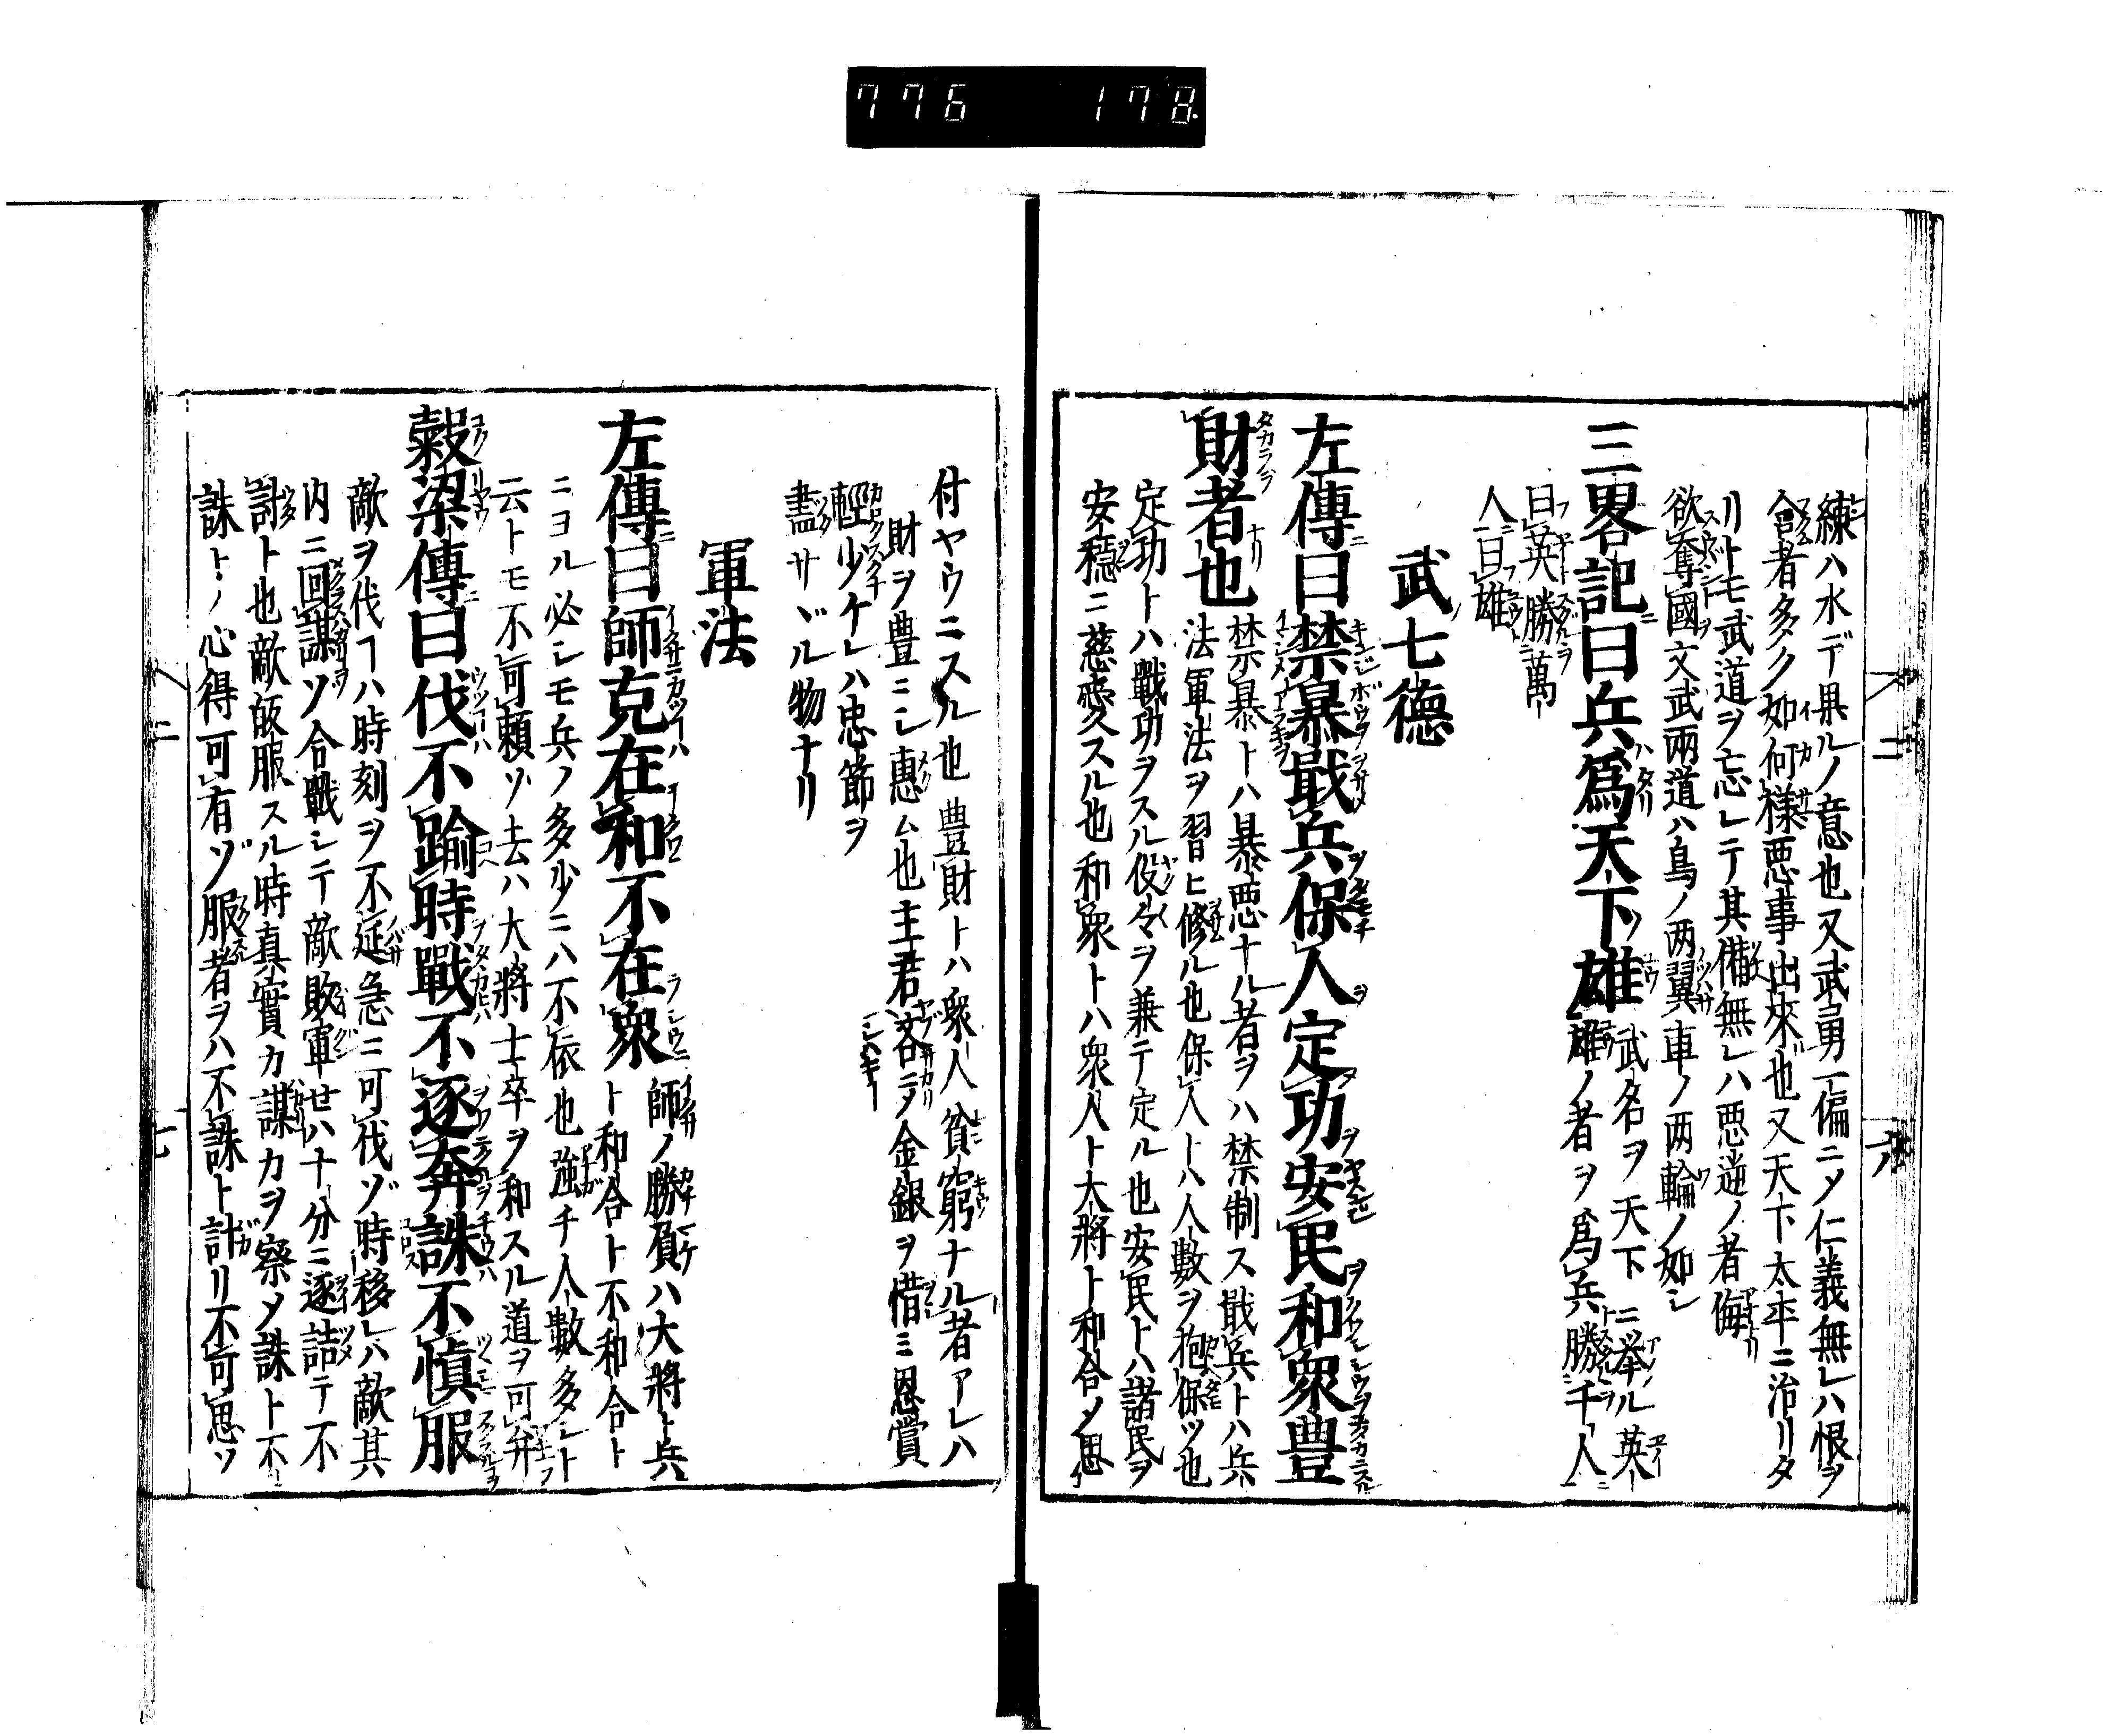 776 178
練ハ水デ果ルノ意也又武勇一偏ニメ仁義無レハ恨ヲ
會者多ク如何樣悪事出來ゼ也又天下太平ニ治リタ
リトモ武道ヲ忘レテ其備無レハ悪逆ノ者侮
欲奪國文武兩道ハ鳥ノ両翼車ノ両輪ノ如シ
三畧記曰兵爲天下ノ雄
武名ヲ天下ニ挙ル英
雄ノ者ヲ爲兵勝千人
曰英勝萬
人曰雄
武七德
左傳曰禁暴戢兵保人定功安民和衆豊
財者也
禁暴トハ暴悪ナル者ヲハ禁制ス戢兵トハ兵
法軍法ヲ習ヒ修ル也保人トハ人數ヲ抱保ツ也
定功トハ戰功ヲスル役々ヲ兼テ定ル也安民トハ諸民ヲ
安穏ニ慈愛スル也和衆トハ衆人ト大將ト和合ノ思
六
付ヤウニスル也豊財トハ衆人貧窮ナル者アレハ
財ヲ豊ニシ惠ム也主君吝テ金銀ヲ惜ミ恩賞
輕少ケレハ忠節ヲ
盡サヾル物ナリ
軍法
左傳曰師克在和不在衆
師ノ勝負ハ大將ト兵
ト和合ト不和合ト
ニヨル必シモ兵ノ多少ニハ不依也強チ人數多シト
云トモ不可頼ソ去ハ大將士卒ヲ和スル道ヲ可弁
穀梁傳曰伐不踰時戰不逐奔誅不慎服
敵ヲ伐ヿハ時刻ヲ不延急ニ可伐ゾ時移レハ敵其
内ニ回謀ソ合戰シテ敵敗軍せハ十分ニ逐詰テ不
討ト也敵皈服スル時真實カ謀カヲ察メ誅ト不
誅トノ心得可有ゾ服者ヲハ不誅ト計リ不可思ソ
七